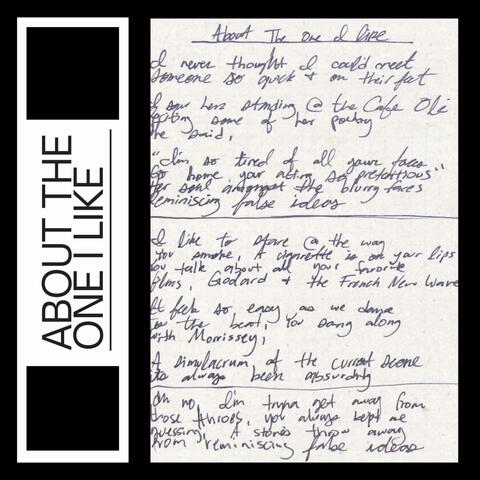 ABOUT THE
ONE I LIKE
About The One I Like
I never thought I could meet
someone so quick & on their feet
I saw her standing @ the Cafe Oli
reciting some of her poetry
He said,
"I'm so tired of all your faces
Go home your acting so pretentious"
Her soul amongst the blurry faces
Reminiscing false ideas
I like to stare @ the way
You smoke, A cigarette is on your lips
You talk about all your favorite
films, Godard & the French New Wave
It feels so easy as we dance
to the beat, You sang along
with Morrissey,
A simulacrum of the current scene
its always been absurdity
Oh no, I'm tryna get away from
those throes, you always kept me
guessing, A stones throw away
From reminiscing false ideas